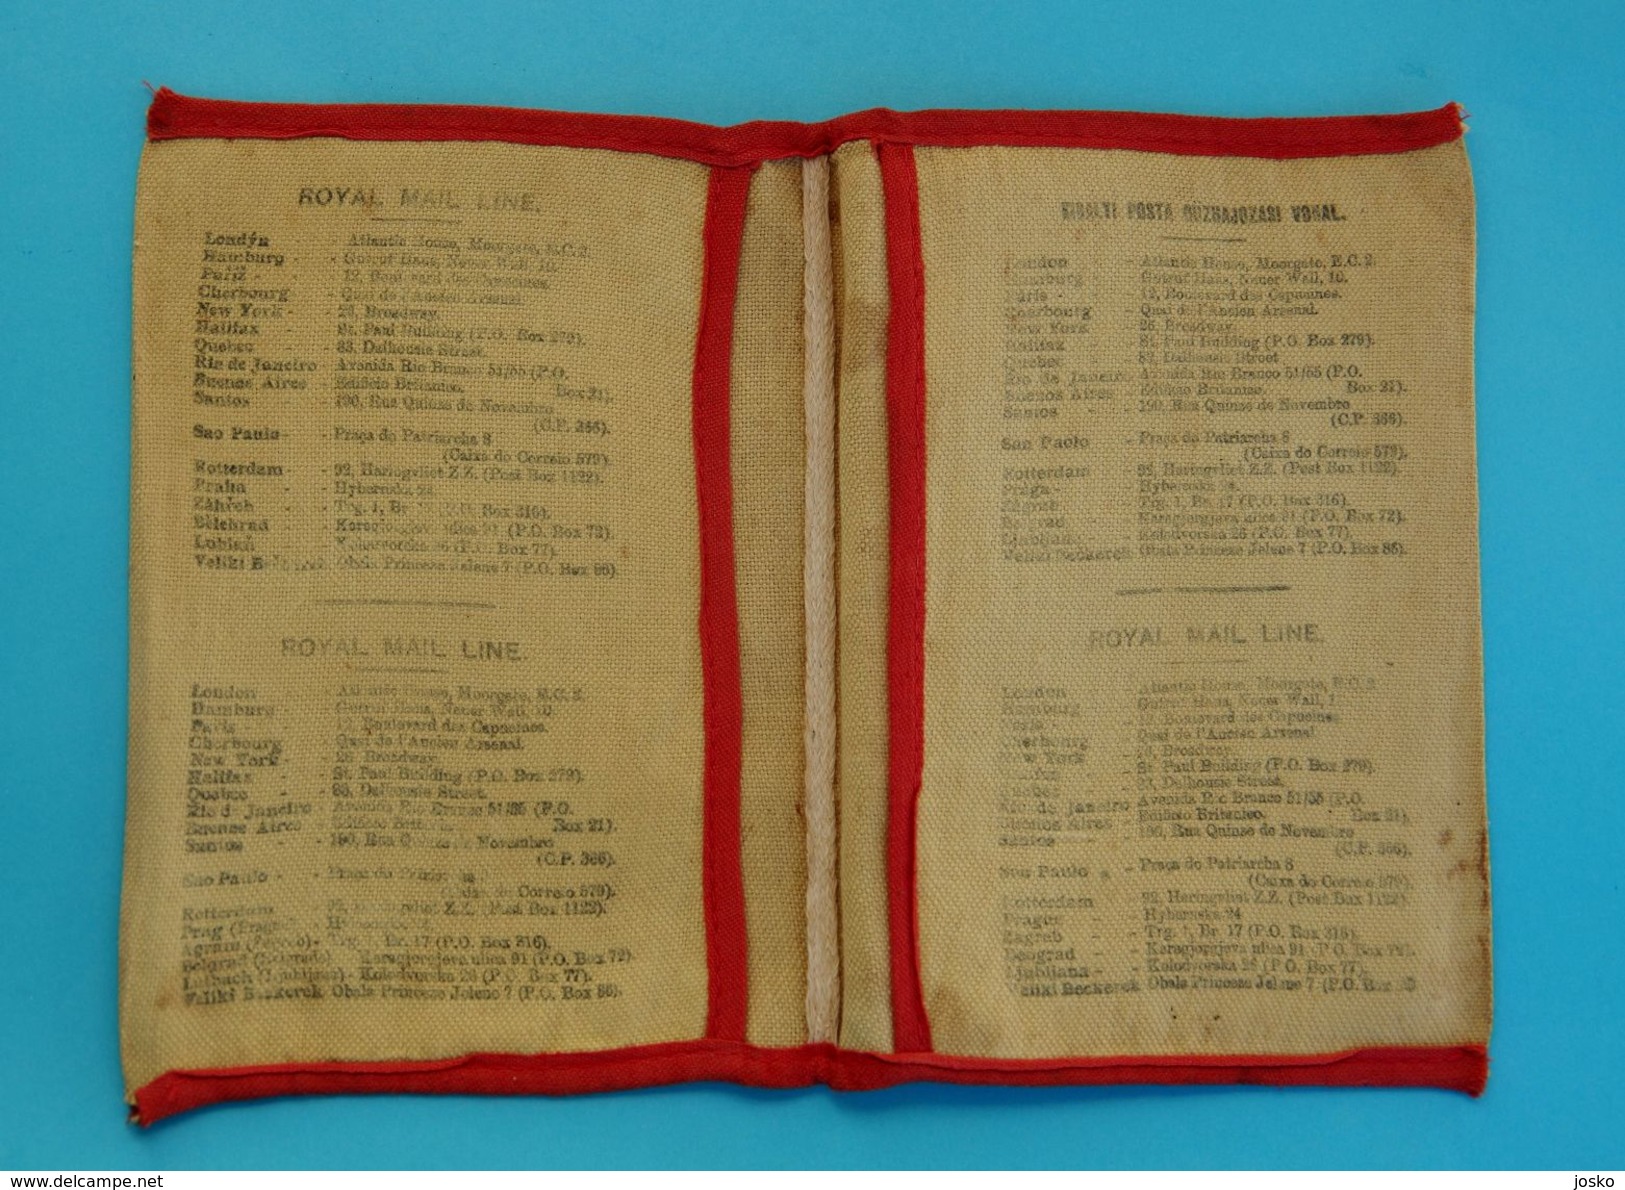 ROYAL MAIL LINE.
Londýn - Atlantic House, Moorgate, E.C. 2.
Hamburg - Gutruf Haus, Neuer Wall, 10.
Paříž - 12, Boulevard des Capucines.
Cherbourg - Quai de l'Ancien Arsenal.
New York - 26, Broadway.
Halifax - St. Paul Building (P.O. Box 279).
Quebec - 83, Dalhousie Street.
Rio de Janeiro - Avenida Rio Branco 51/55 (P.O.
Box 21).
Buenos Aires - Edificio Britanico.
Santos - 190, Rua Quinze de Novembro
(C.P. 366).
Sao Paulo - Praça do Patriarcha 8
(Caixa do Correio 579).
Rotterdam - 92, Haringvliet Z.Z. (Post Box 1122).
Praha - Hybernska 24.
Záhřeb - Trg. 1, Br. (P.O. Box 316).
Bělehrad - Karagjorgjeva ulica 91 (P.O. Box 72).
Lublaň - Kolodvorska 26 (P.O. Box 77).
Veliki - Obala Princeze Jelene 7 (P.O. Box 86).
ROYAL MAIL LINE.
London - Atlantic House, Moorgate, E.C. 2.
Hamburg - Gutruf Haus, Neuer Wall, 10.
Paris - 12, Boulevard des Capucines.
Cherbourg - Quai de l'Ancien Arsenal.
New York - 26 Broadway.
Halifax - St. Paul Building (P.O. Box 279).
Quebec - 83, Dalhousie Street.
Rio d Janeiro - Avenida Rio Branco 51/55 (P.O.
Box 21).
Buenos Aires - Edificio Britanico
Santos - 190, Rua Quinze de Novembro
(C.P. 366).
Sao Paulo - Praca do Patriarcha
(Caixa do Correio 579).
Rotterdam - 92, Haringvliet Z.Z. (Post Box 1122).
Prag (Prague)
Agram (Zagreb) - Trg. 1, Br. 17 (P.O. Box 316).
Belgrad (Belgrade) - Karagjorgjeva ulica 91 (P.O. Box 72)
Laibach (Ljubljana) - Kolodvorska 26 (P.O. Box 77).
Veliki Beckerek Obala Princeze Jelene 7 (P.O. Box 86).
POSTA VONAL.
London - Atlantic House, Moorgate, E.C. 2.
Hamburg Gutruf Haus, Neuer Wall, 10.
Paris - 12, Boulevard des Capucines.
Cherbourg - Quai de l'Ancien Arsenal.
New York 26, Broadway.
Halifax - St. Paul Building (P.O. Box 279).
Quebec - Dalhousie Street
Rio de Janeiro - Avenida Rio Branco 51/55 (P.O.
Box 21).
Buenos Aires - Edificio Britanico
Santos - 190, Rua Quinze de Novembro
(C.P. 366).
San Paolo - Praça do Patriarcha 8
(Caixa do Correio 579).
Rotterdam - 92, Haringvliet Z.Z. (Post Box 1122).
Praga - Hybernska 24.
Zágráb - Trg. 1, Br. 17 (P.O. Box 316).
Belgrad - Karagjorgjeva ulica 91 (P.O. Box 72).
Ljubljana - Kolodvorska 26 (P.O. Box 77).
Veliki Beckerek Obala Princeze Jelene 7 (P.O. Box 86).
ROYAL MAIL LINE.
London - Atlantic House, Moorgate, E.C. 2
Hamburg Gutruf Haus, Neuer Wall,
12, Boulevard des Capucines
Cherbourg - Quai de l'Ancien Arsenal
New York - 26, Broadway.
Halifax - St. Paul Building (P.O. Box 279).
Quebec - 83, Dalhousie Street.
Rio de Janeiro - Avenida Rio Branco 51/55 (P.O.
Box 21).
Buenos Aires - Edificio Britanico.
Santos - 190, Rua Quinze de Novembro
(C.P. 366).
Sao Paulo - Praça do Patriarcha 8
(Caixa do Correio 579).
Rotterdam - 92, Haringvliet Z.Z. (Post Box 1122).
Prague - Hybernska 24
Zagreb - Trg. 1, Br. 17 (P.O. Box 316).
Beograd - Karagjorgjeva ulica 91 (P.O. Box 72).
Ljubljana - Kolodvorska 26 (P.O. Box 77).
Veliki Beckerek Obala Princeze Jelene 7 (P.O. Box
delcampe.net
josko